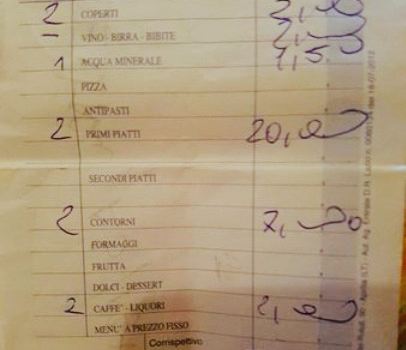 2 COPERTI 3,00
VINO - BIRRA - BIBITE 2,00
1 ACQUA MINERALE 1,50
PIZZA
ANTIPASTI
2 PRIMI PIATTI 20,00
SECONDI PIATTI
2 CONTORNI 7,00
FORMAGGI
FRUTTA
DOLCI - DESSERT
2 CAFFE' - LIQUORI 2,00
MENU' A PREZZO FISSO
Corrispettivo